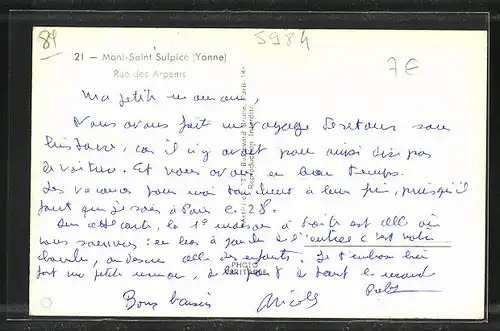 89
5984
7€
21 — Mont-Saint Sulpice (Yonne)
Rue des Arpents
Ma petite maman,
Nous avons fait un voyage de retour sans
histoire, car il n'y avait pas aussi
de voitures. Et nous avons eu beau temps.
Les vacances pour moi touchent à leur fin, puisqu'il
faut que je sois à Paris le 28.
Sur cette carte, la 1° maison à est celle où
nous sommes : en bas à gauche de l'entrée c'est votre
chambre, au dessus celle des enfants. Je t'embrasse bien
fort ma petite maman, à tout le monde
Bons baisers
Nicole
177 Boulevard Brune, Paris 14e
Reproduction Interdite
PHOTO
VÉRITABLE